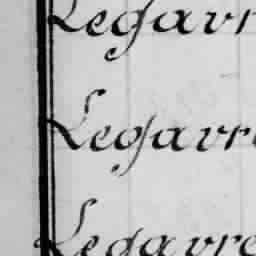 Legavr
Legavre
Legavre